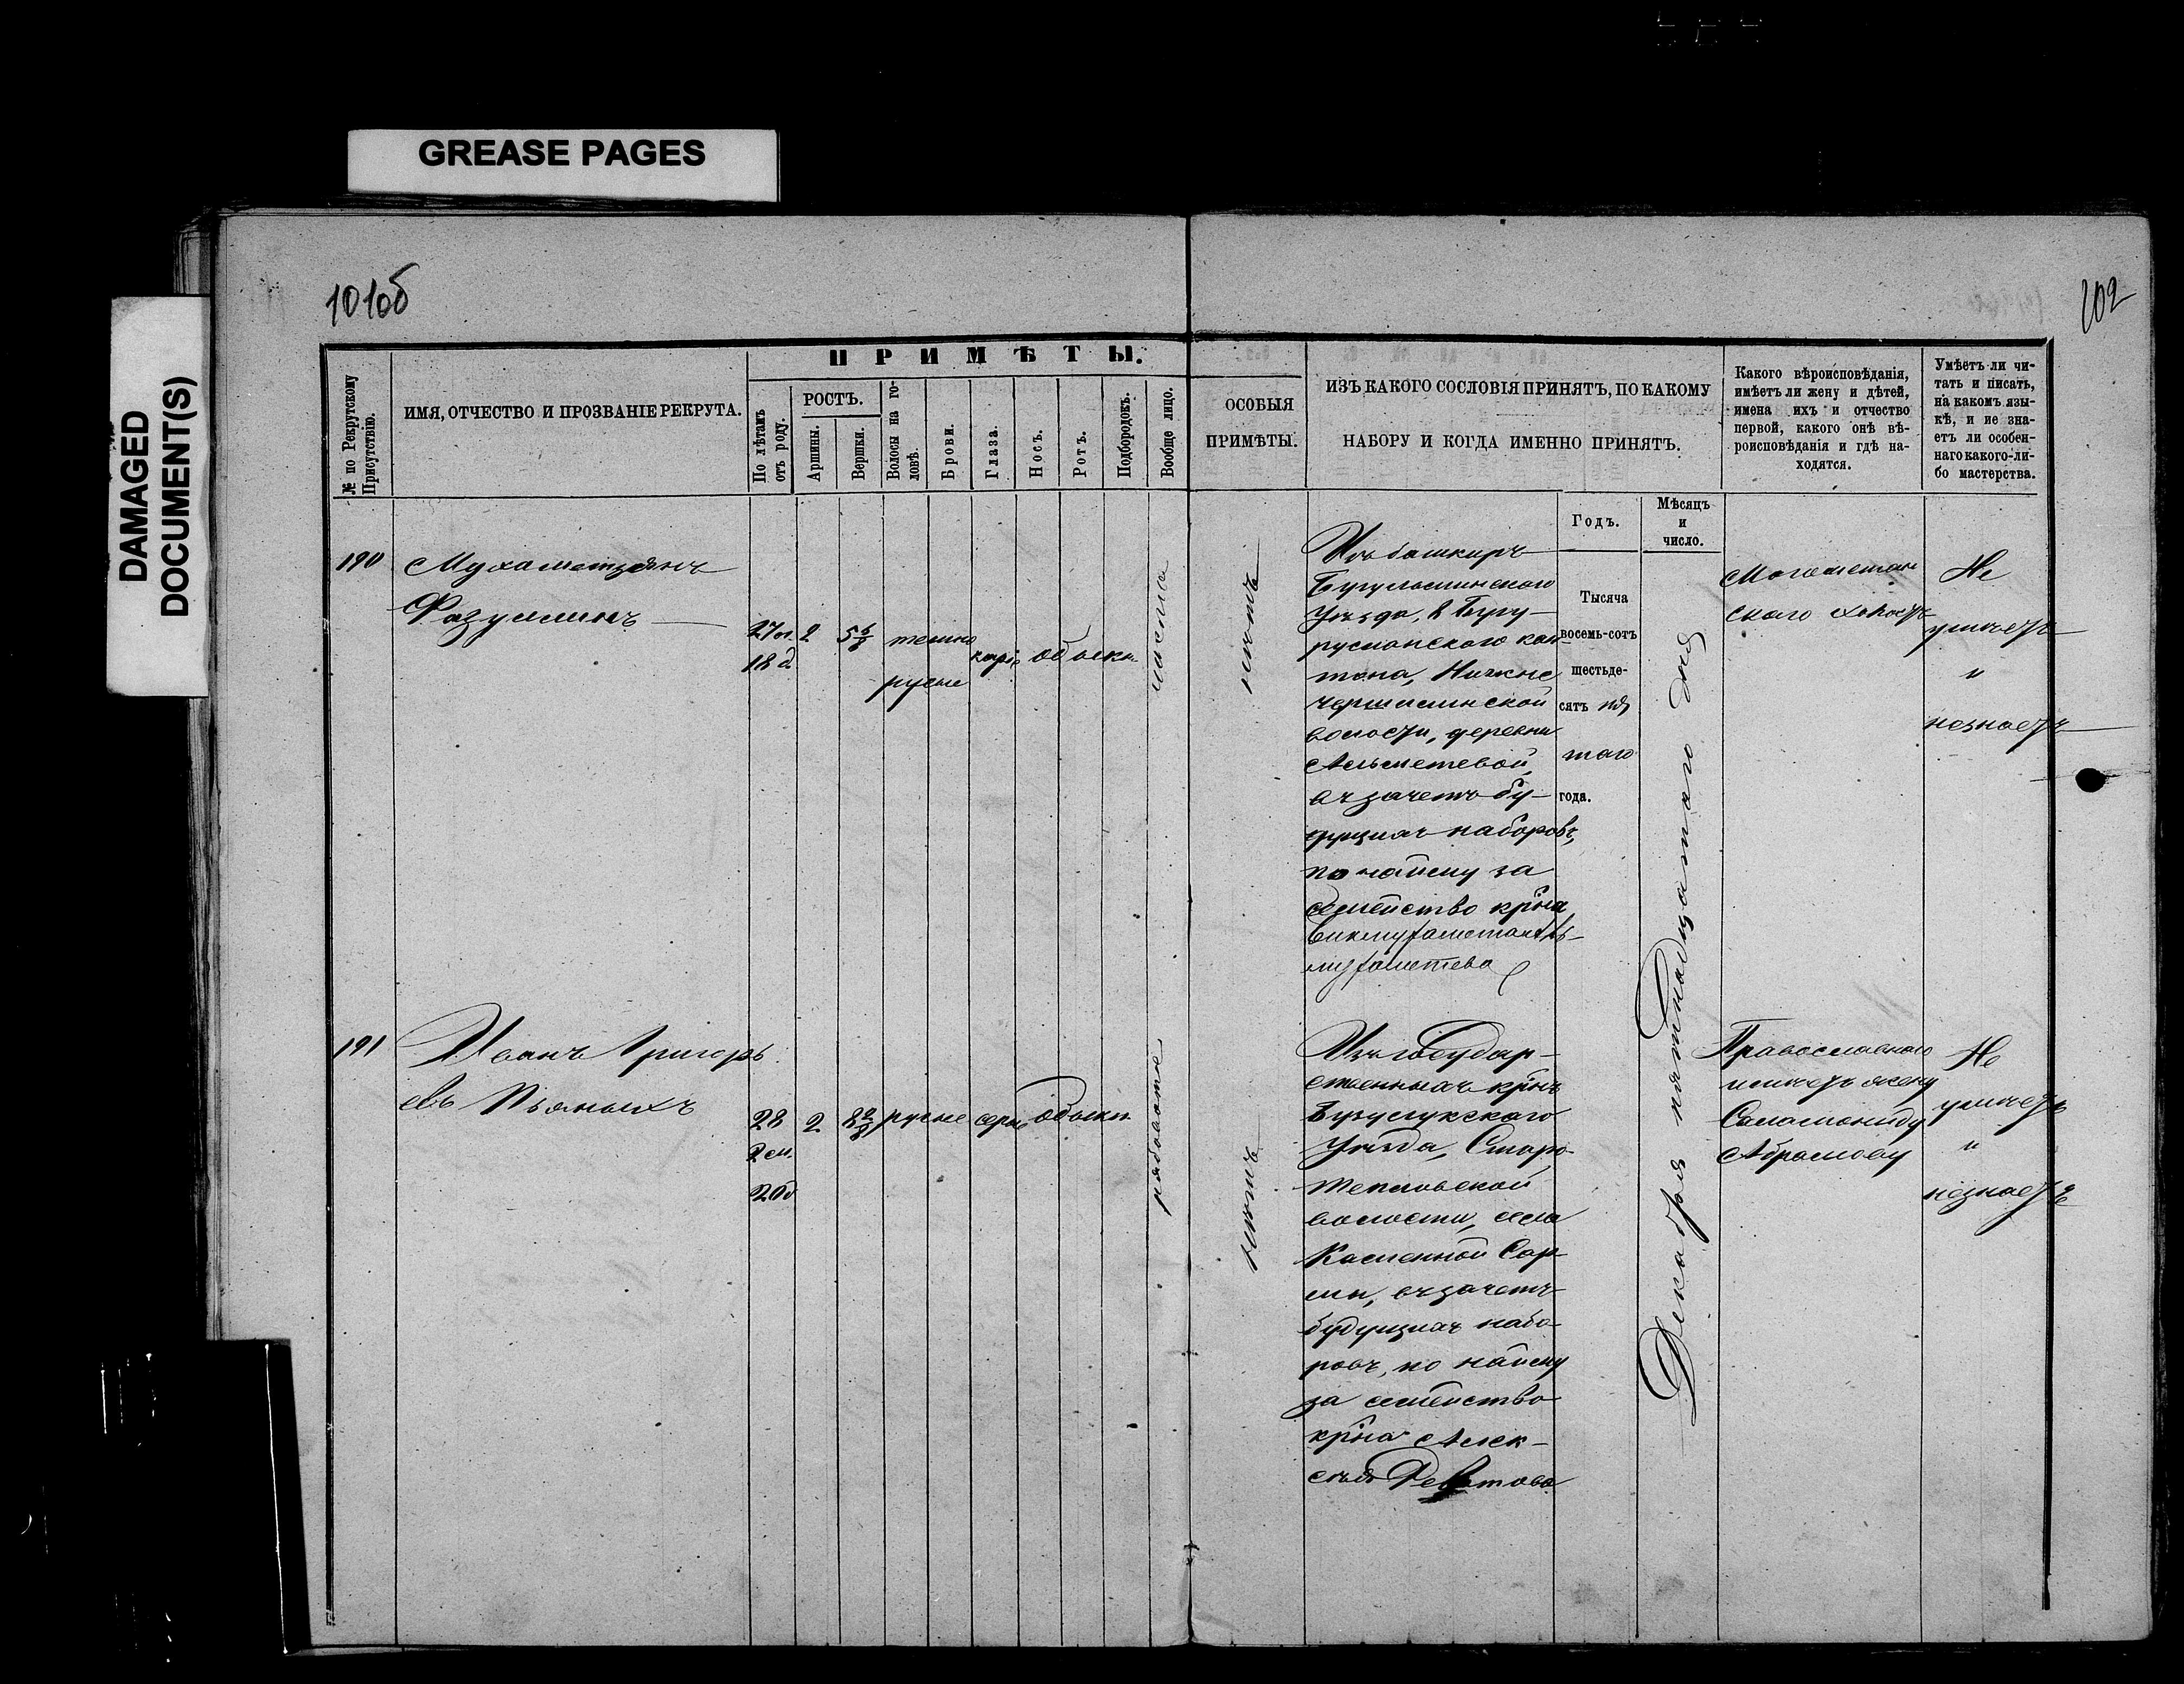 GREASE PAGES
DAMAGED
DOCUMENT(S)
101об
102
ПРИМѢТЫ.
№ по Рекрутскому
Присутствію.
ИМЯ, ОТЧЕСТВО И ПРОЗВАНІЕ РЕКРУТА.
По лѣтамъ
отъ роду.
РОСТЪ.
Аршины.
Вершки.
Волосы на го-
ловѣ.
Брови.
Глаза.
Носъ.
Ротъ.
Подбородокъ.
Вообще лицо.
ОСОБЫЯ
ПРИМѢТЫ.
ИЗЪ КАКОГО СОСЛОВІЯ ПРИНЯТЪ, ПО КАКОМУ
НАБОРУ И КОГДА ИМЕННО ПРИНЯТЪ.
Годъ.
Мѣсяцъ
и
число.
Какого вѣроисповѣданія,
имѣетъ ли жену и дѣтей,
имена ихъ и отчество
первой, какого онѣ вѣ-
роисповѣданія и гдѣ на-
ходятся.
Умѣетъ-ли чи-
тать и писать,
на какомъ язы-
кѣ, и не зна-
етъ ли особен-
наго какого-ли-
бо мастерства.
190
Мухаметзянъ
27
18 д
2
5 6/8
темно
русые
каріе
обыкн
чисто
нѣтъ
Изъ башкиръ
Бугульминскаго
Уѣзда, Бугу-
русланскаго кан-
тона, Нижне
чершилинской
волости, деревни
Альметевой,
въ зачетъ бу-
дущихъ наборовъ,
по найму за
семейство кр҃на
Тысяча
восемь-сотъ
шестьде-
сятъ пя
таго
года.
Декабря пятнадцатаго дня
Магометан
скаго холостъ
Не
умѣетъ
и
незнаетъ
191
Иванъ Григорь
евъ Пьяныхъ
28
2 м.
20 д
2
8 2/8
русые
серые
обыкн
рябоватое
нѣтъ
Изъ Государ-
ственныхъ кр҃нъ
Бузулукскаго
Уѣзда, Старо-
тепловской
волости, села
Каменной Сар-
мы, въ зачетъ
будущихъ набо-
ровъ, по найму
за семейство
кр҃на Алек-
сѣя Девятова
Православнаго
имѣетъ жену
Саламониду
Абрамову
Не
умѣетъ
и
незнаетъ